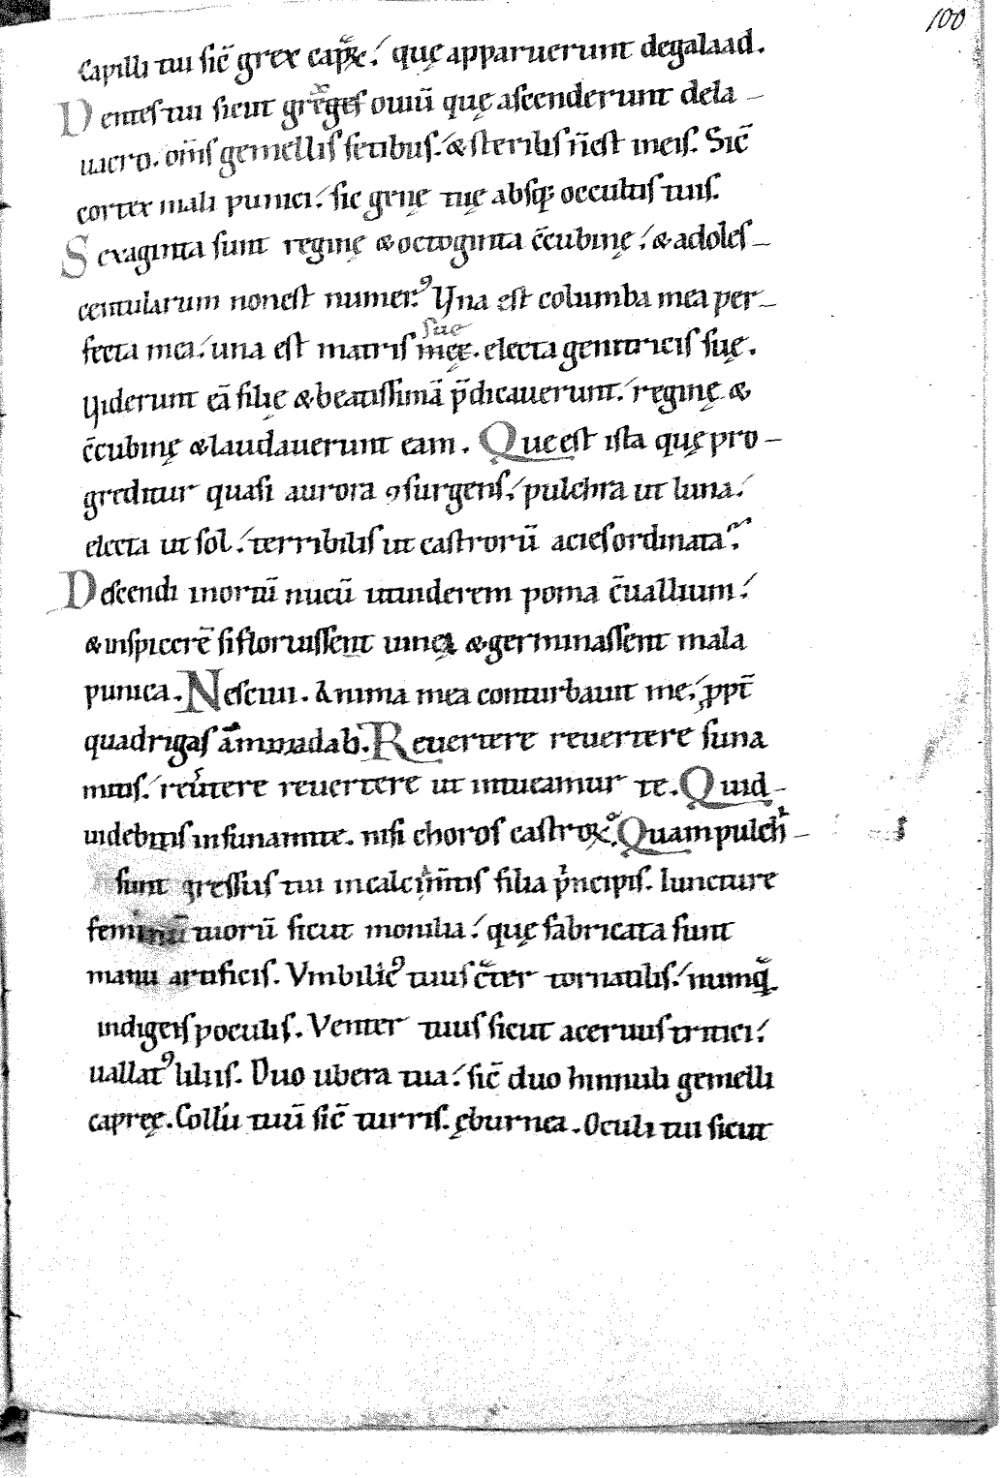 100
Capilli tui sic̄ grex cap̄ꝝ. quę apparuerunt degalaad.
Dentes tui sicut grēges ouiū quę ascenderunt dela-
uacro. om̄s gemellis fetibus. & sterilis n̄est ineis. Sic̄
cortex mali punici. sic genę tuę absq; occultis tuis.
Sexaginta sunt reginę & octoginta c̄cubinę. & adoles-
centularum nonest numerꝰ. Una est columba mea per-
fecta mea. una est matris meę sue. electa genitricis suę.
Uiderunt eā filię & beatissimā p̄dicauerunt. reginę &
c̄cubinę & laudauerunt eam. Que est ista quę pro-
greditur quasi aurora ꝯsurgens. pulchra ut luna.
electa ut sol. terribilis ut castrorū acies ordinata.
Descendi inortū nucū utuiderem poma c̄uallium.
& inspicerē sifloruissent uineę & germinassent mala
punica. Nesciui. Anima mea conturbauit me. ꝓpt̄
quadrigas aminadab. Reuertere reuertere suna
mitis. reu̓tere reuertere ut intueamur te. Quid-
uidebitis insunamite. nisi choros castroꝝ. Quam pulch̓-
sunt gressus tui incalciam̄tis filia p̓ncipis. Iuncture
feminū tuorū sicut monilia. quę fabricata sunt
manu artificis. Vmbilicꝰ tuus c̓ter tornatilis. numq̄
indigens poculis. Venter tuus sicut aceruus tritici.
uallatꝰ liliis. Duo ubera tua. sic̄ duo hinnuli gemelli
capreę. Collū tuū sic̄ turris. ęburnea. Oculi tui sicut